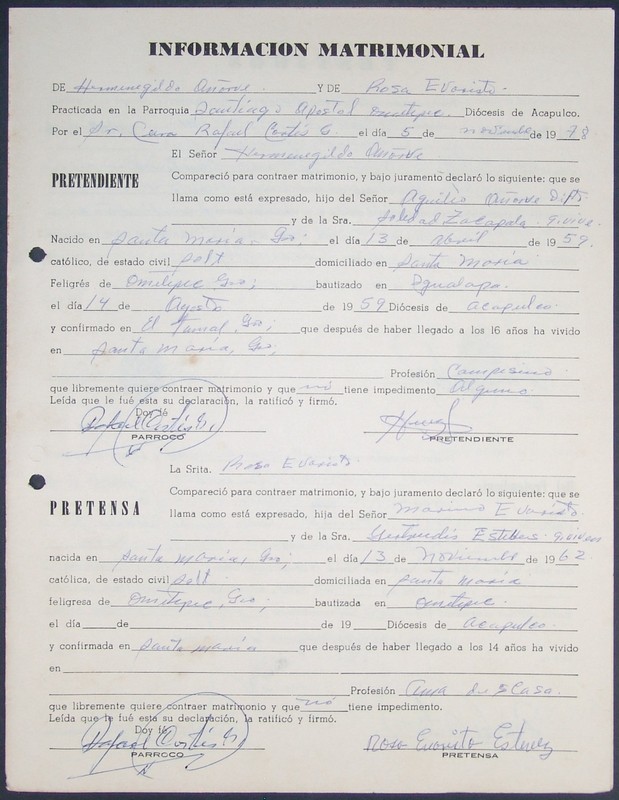 INFORMACION MATRIMONIAL
DE Hermenegildo Añorve. Y DE Rosa Evaristo.
Practicada en la Parroquia Santiago Apostol Ometepec. Diócesis de Acapulco.
Por el Sr. Cura Rafael Cortés G. el día 5 de noviembre de 1978
El Señor Hermenegildo Añorve
PRETENDIENTE
Compareció para contraer matrimonio, y bajo juramento declaró lo siguiente: que se
llama como está expresado, hijo del Señor Aquilio Añorve
y de la Sra. Soledad Zacapala. q. vive.
Nacido en Santa María, Gro; el día 13 de abril de 1959.
católico, de estado civil solt domiciliado en Santa María
Feligrés de Ometepec Gro; bautizado en Igualapa.
el día 14 de Agosto de 1959 Diócesis de Acapulco.
y confirmado en El Tamal, Gro; que después de haber llegado a los 16 años ha vivido
en Santa María, Gro;
Profesión Campesino
que libremente quiere contraer matrimonio y que no tiene impedimento Alguno
Leída que le fué esta su declaración, la ratificó y firmó.
Doy fé
Rafael Cortés G.
PARROCO
PRETENDIENTE
La Srita. Rosa Evaristo
PRETENSA
Compareció para contraer matrimonio, y bajo juramento declaró lo siguiente: que se
llama como está expresado, hijo del Señor Marino Evaristo.
y de la Sra. q. viven
nacida en Santa María, Gro; el día 13 de Noviembre de 1962
católica, de estado civil solt domiciliada en Santa María
feligresa de Ometepec, Gro; bautizada en Ometepec.
el día de de 19 Diócesis de Acapulco.
y confirmada en Santa María que después de haber llegado a los 14 años ha vivido
en
Profesión Ama de s Casa.
que libremente quiere contraer matrimonio y que no tiene impedimento.
Leída que le fué esta su declaración, la ratificó y firmó.
Doy fé
Rafael Cortés G.
PARROCO
Rosa Evaristo Estevez
PRETENSA